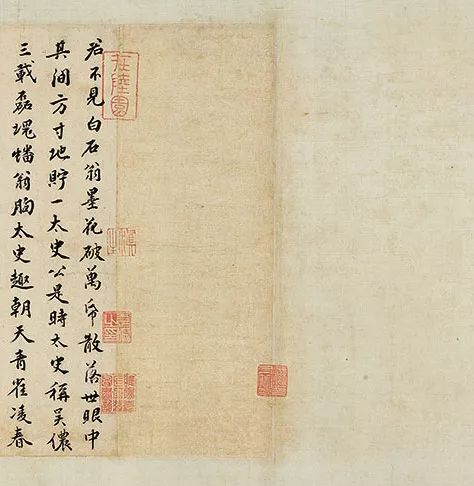 君不見白石翁墨花破萬帋散落世眼中
其間方寸地貯一太史公是時太史稱吳儂
三載磊塊蟠翁胸太史趣朝天青雀凌春